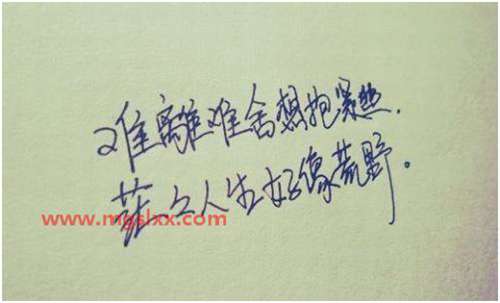 难離难舍想抱紧些.
茫々人生好像荒野。
www.mgslxx.com